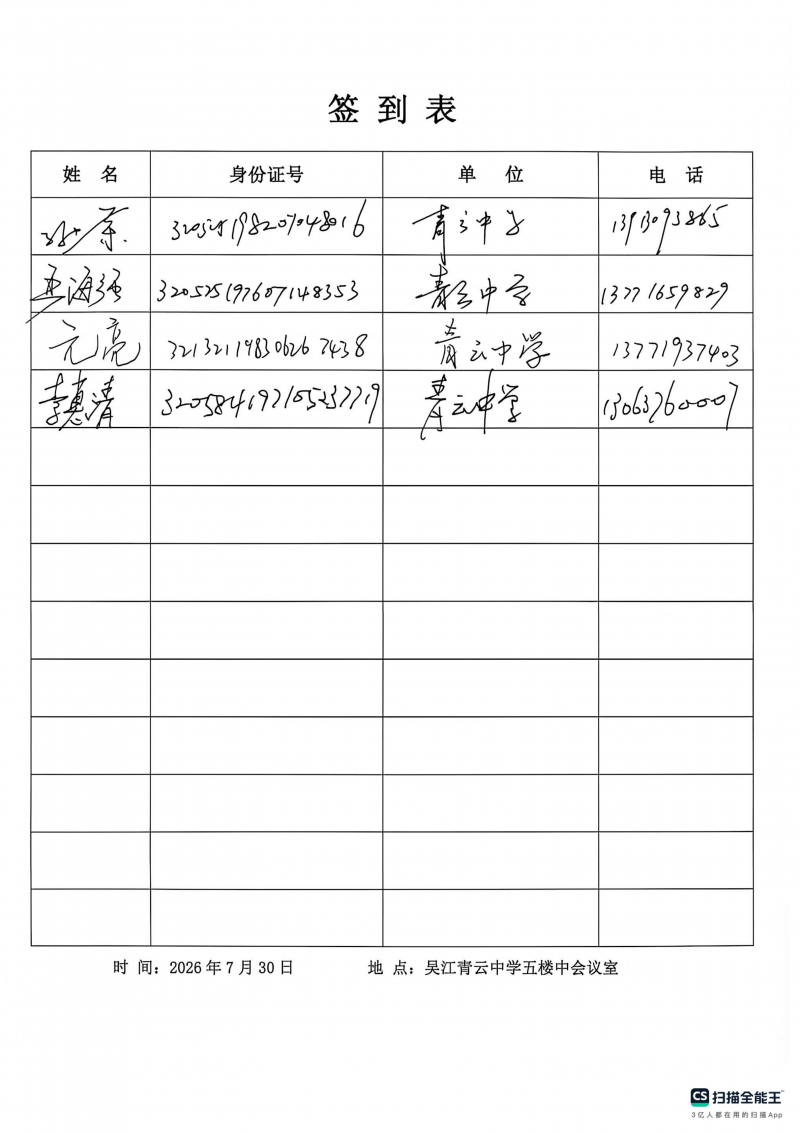 签 到 表
姓 名 身份证号 单 位 电 话
青云中学 13913093865
王海强 320525197607148353 青云中学 13771659829
元亮 321321198306267438 青云中学 13771937403
李惠清 青云中学 13063760007
时 间：2026年7月30日 地 点：吴江青云中学五楼中会议室
CS 扫描全能王
3亿人都在用的扫描App